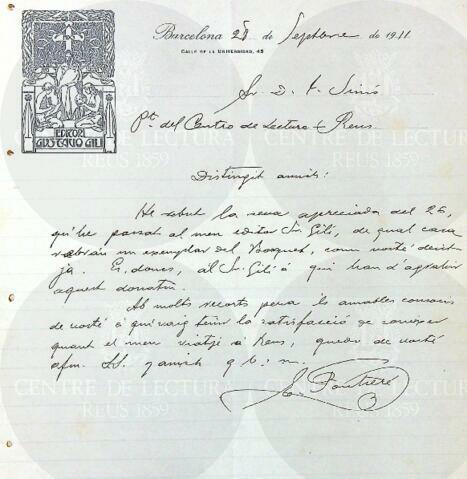 Barcelona 28 de Septbre de 1911
CALLE DE LA UNIVERSIDAD, 45
EDITOR
GUSTAVO GILI
Sr. D.
Pt. del Centro de Lectura Reus
Distingit amich:
He rebut la seva apreciada del 26,
qu'he passat al meu editor Sr. Gili, de qual casa
rebrán un exemplar del Bosquet, com vosté desitja
ja. Es, donchs, al Sr. Gili á qui han d'agrahir
aquest donatiu.
Ab molts recorts pera los amables consocis
de vosté á qui vaig tenir la satisfacció de coneixer
quant el meu viatje á Reus, quedo de vosté
afm. SS. y amich q. b. s. m.
CENTRE DE LECTURA
REUS 1859
CENTRE DE LECTURA
REUS 1859